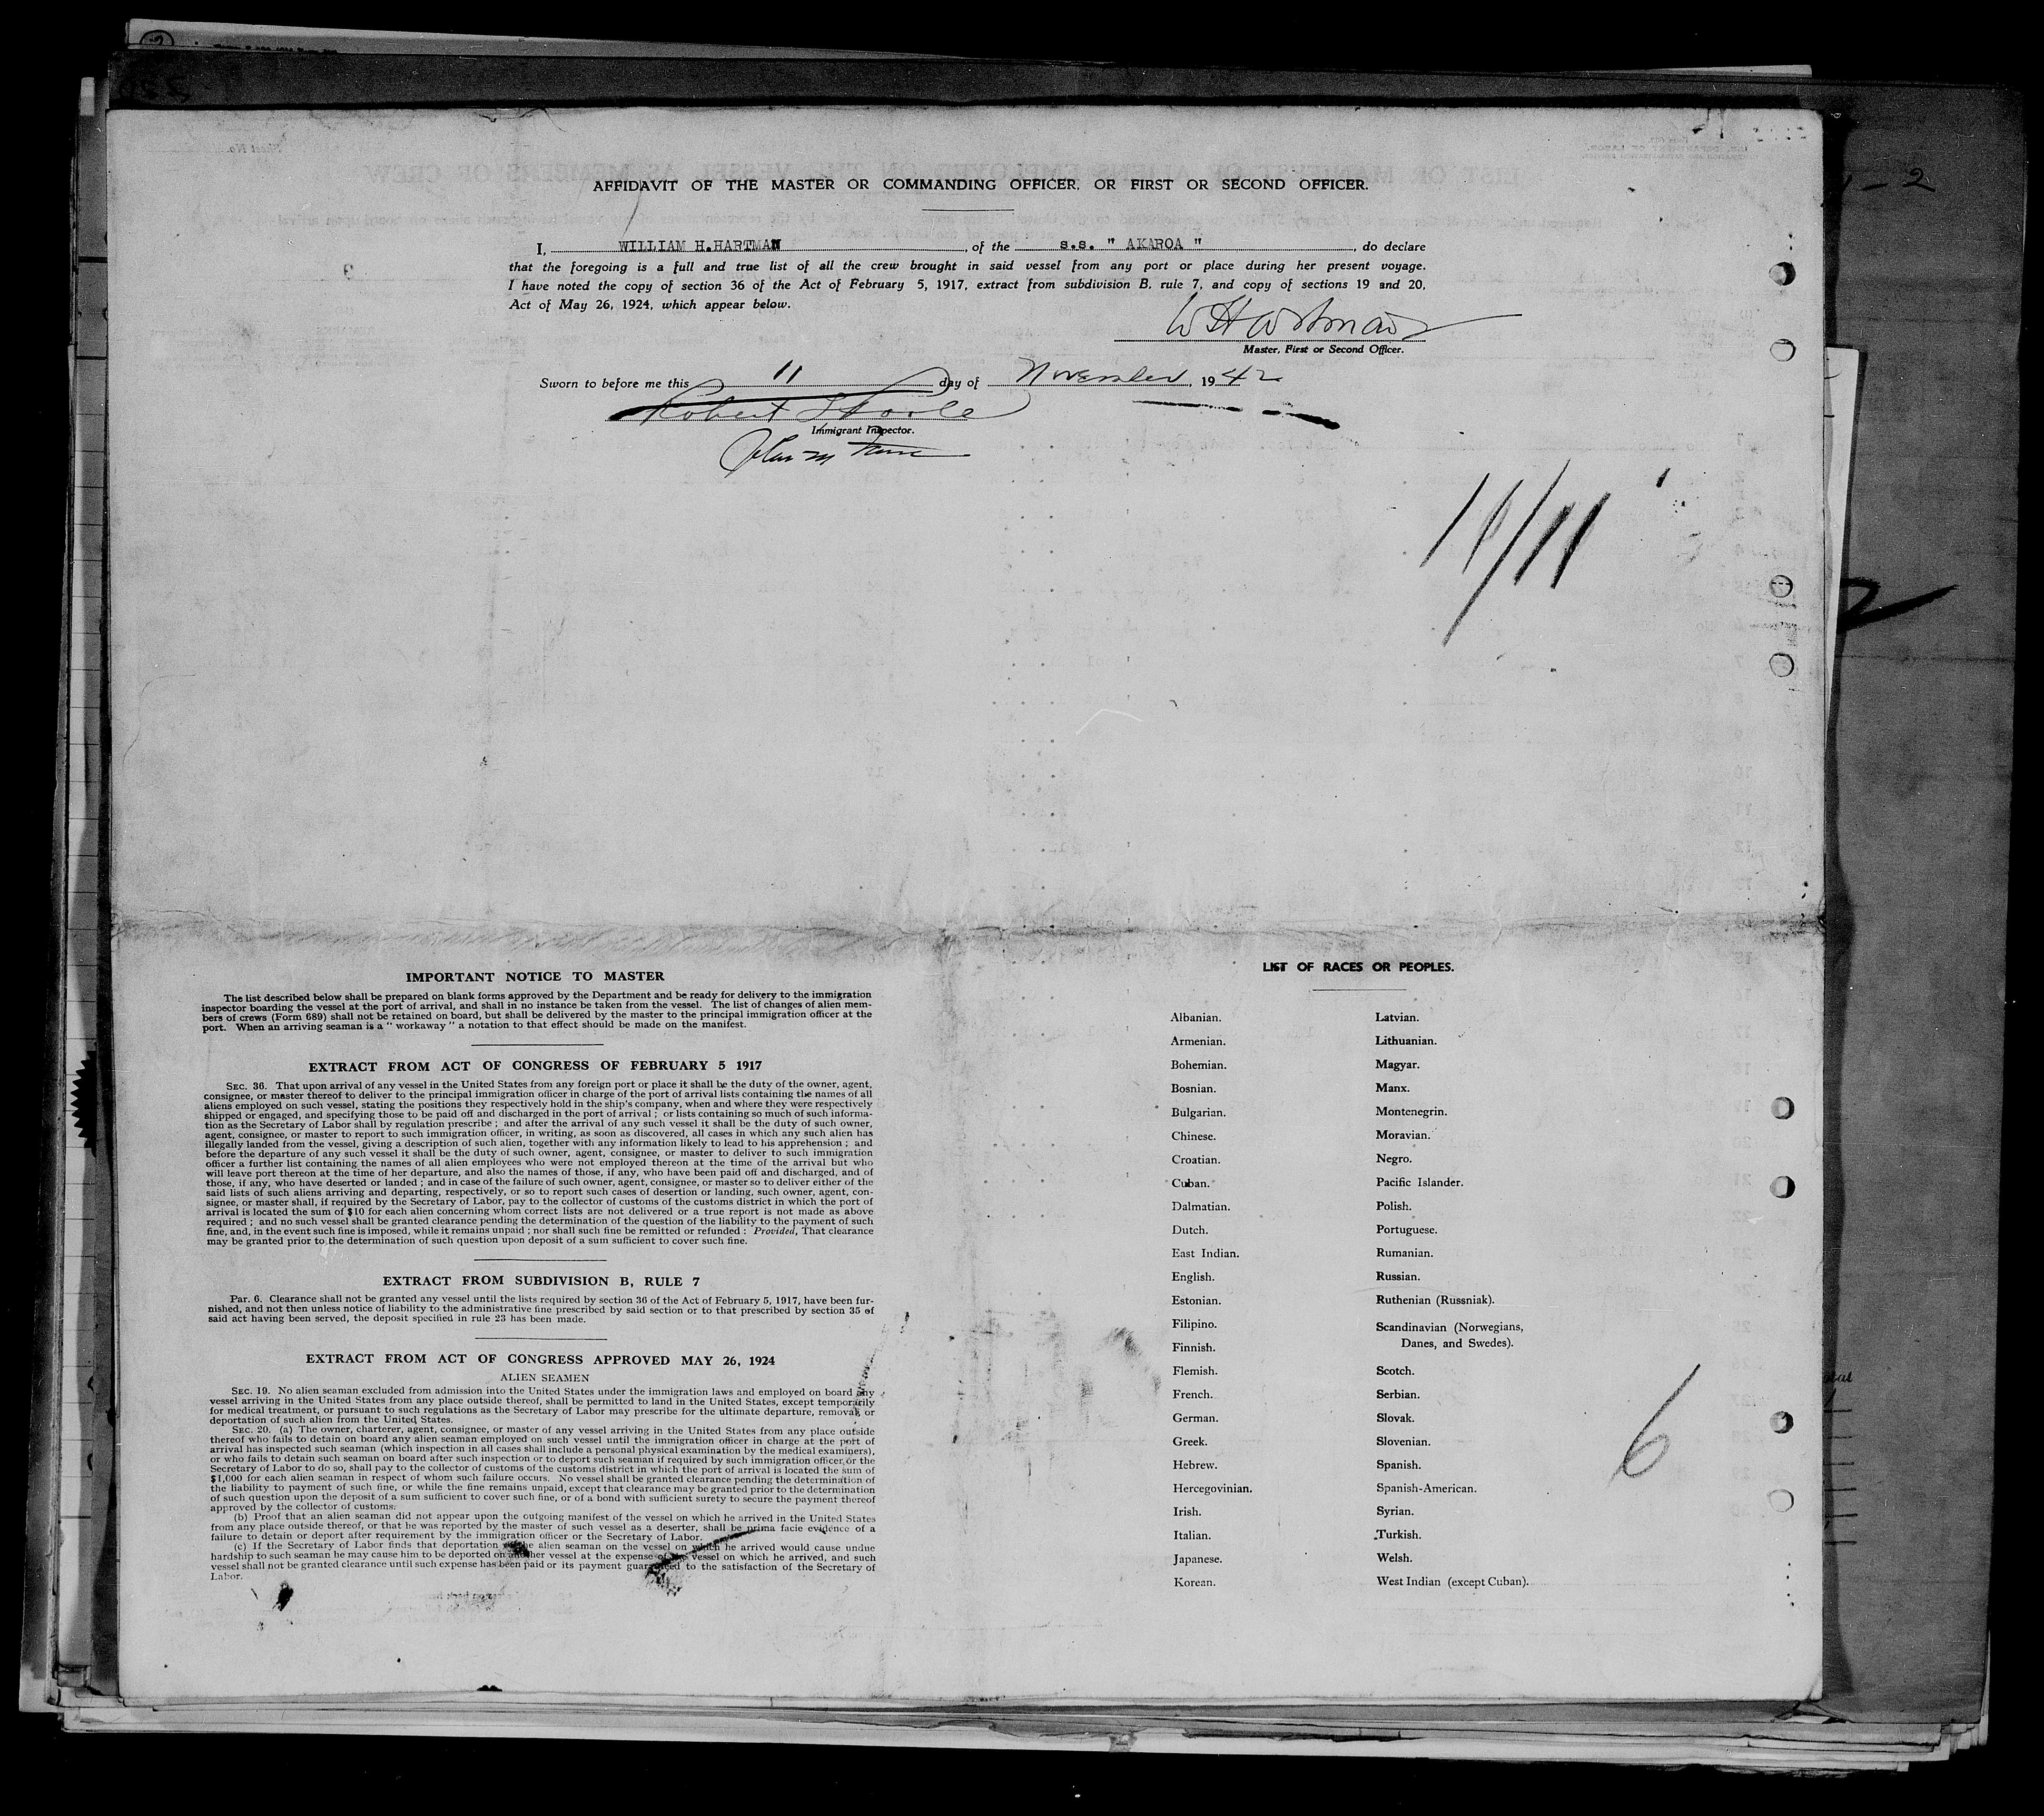 AFFIDAVIT OF THE MASTER OR COMMANDING OFFICER, OR FIRST OR SECOND OFFICER.
I, WILLIAM H.HARTMAN, of the s.s. " AKAROA ", do declare
that the foregoing is a full and true list of all the crew brought in said vessel from any port or place during her present voyage.
I have noted the copy of section 36 of the Act of February 5, 1917, extract from subdivision B, rule 7, and copy of sections 19 and 20,
Act of May 26, 1924, which appear below.
W H Hartman
Master, First or Second Officer.
Sworn to before me this 11 day of November, 1942
Robert
Immigrant Inspector.
11/11
IMPORTANT NOTICE TO MASTER
The list described below shall be prepared on blank forms approved by the Department and be ready for delivery to the immigration
inspector boarding the vessel at the port of arrival, and shall in no instance be taken from the vessel. The list of changes of alien mem-
bers of crews (Form 689) shall not be retained on board, but shall be delivered by the master to the principal immigration officer at the
port. When an arriving seaman is a " workaway " a notation to that effect should be made on the manifest.
EXTRACT FROM ACT OF CONGRESS OF FEBRUARY 5 1917
SEC. 36. That upon arrival of any vessel in the United States from any foreign port or place it shall be the duty of the owner, agent,
consignee, or master thereof to deliver to the principal immigration officer in charge of the port of arrival lists containing the names of all
aliens employed on such vessel, stating the positions they respectively hold in the ship's company, when and where they were respectively
shipped or engaged, and specifying those to be paid off and discharged in the port of arrival ; or lists containing so much of such informa-
tion as the Secretary of Labor shall by regulation prescribe ; and after the arrival of any such vessel it shall be the duty of such owner,
agent, consignee, or master to report to such immigration officer, in writing, as soon as discovered, all cases in which any such alien has
illegally landed from the vessel, giving a description of such alien, together with any information likely to lead to his apprehension ; and
before the departure of any such vessel it shall be the duty of such owner, agent, consignee, or master to deliver to such immigration
officer a further list containing the names of all alien employees who were not employed thereon at the time of the arrival but who
will leave port thereon at the time of her departure, and also the names of those, if any, who have been paid off and discharged, and of
those, if any, who have deserted or landed ; and in case of the failure of such owner, agent, consignee, or master so to deliver either of the
said lists of such aliens arriving and departing, respectively, or so to report such cases of desertion or landing, such owner, agent, con-
signee, or master shall, if required by the Secretary of Labor, pay to the collector of customs of the customs district in which the port of
arrival is located the sum of $10 for each alien concerning whom correct lists are not delivered or a true report is not made as above
required ; and no such vessel shall be granted clearance pending the determination of the question of the liability to the payment of such
fine, and, in the event such fine is imposed, while it remains unpaid ; nor shall such fine be remitted or refunded : Provided, That clearance
may be granted prior to the determination of such question upon deposit of a sum sufficient to cover such fine.
EXTRACT FROM SUBDIVISION B, RULE 7
PAR. 6. Clearance shall not be granted any vessel until the lists required by section 36 of the Act of February 5, 1917, have been fur-
nished, and not then unless notice of liability to the administrative fine prescribed by said section or to that prescribed by section 35 of
said act having been served, the deposit specified in rule 23 has been made.
EXTRACT FROM ACT OF CONGRESS APPROVED MAY 26, 1924
ALIEN SEAMEN
SEC. 19. No alien seaman excluded from admission into the United States under the immigration laws and employed on board any
vessel arriving in the United States from any place outside thereof, shall be permitted to land in the United States, except temporarily
for medical treatment, or pursuant to such regulations as the Secretary of Labor may prescribe for the ultimate departure, removal, or
deportation of such alien from the United States.
SEC. 20. (a) The owner, charterer, agent, consignee, or master of any vessel arriving in the United States from any place outside
thereof who fails to detain on board any alien seaman employed on such vessel until the immigration officer in charge at the port of
arrival has inspected such seaman (which inspection in all cases shall include a personal physical examination by the medical examiners),
or who fails to detain such seaman on board after such inspection or to deport such seaman if required by such immigration officer or the
Secretary of Labor to do so, shall pay to the collector of customs of the customs district in which the port of arrival is located the sum of
$1,000 for each alien seaman in respect of whom such failure occurs. No vessel shall be granted clearance pending the determination of
the liability to payment of such fine, or while the fine remains unpaid, except that clearance may be granted prior to the determination
of such question upon the deposit of a sum sufficient to cover such fine, or of a bond with sufficient surety to secure the payment thereof
approved by the collector of customs.
(b) Proof that an alien seaman did not appear upon the outgoing manifest of the vessel on which he arrived in the United States
from any place outside thereof, or that he was reported by the master of such vessel as a deserter, shall be prima facie evidence of a
failure to detain or deport after requirement by the immigration officer or the Secretary of Labor.
(c) If the Secretary of Labor finds that deportation of the alien seaman on the vessel on which he arrived would cause undue
hardship to such seaman he may cause him to be deported on another vessel at the expense of the vessel on which he arrived, and such
vessel shall not be granted clearance until such expense has been paid or its payment guaranteed to the satisfaction of the Secretary of
Labor.
LIST OF RACES OR PEOPLES.
Albanian.
Armenian.
Bohemian.
Bosnian.
Bulgarian.
Chinese.
Croatian.
Cuban.
Dalmatian.
Dutch.
East Indian.
English.
Estonian.
Filipino.
Finnish.
Flemish.
French.
German.
Greek.
Hebrew.
Hercegovinian.
Irish.
Italian.
Japanese.
Korean.
Latvian.
Lithuanian.
Magyar.
Manx.
Montenegrin.
Moravian.
Negro.
Pacific Islander.
Polish.
Portuguese.
Rumanian.
Russian.
Ruthenian (Russniak).
Scandinavian (Norwegians,
Danes, and Swedes).
Scotch.
Serbian.
Slovak.
Slovenian.
Spanish.
Spanish-American.
Syrian.
Turkish.
Welsh.
West Indian (except Cuban).
6